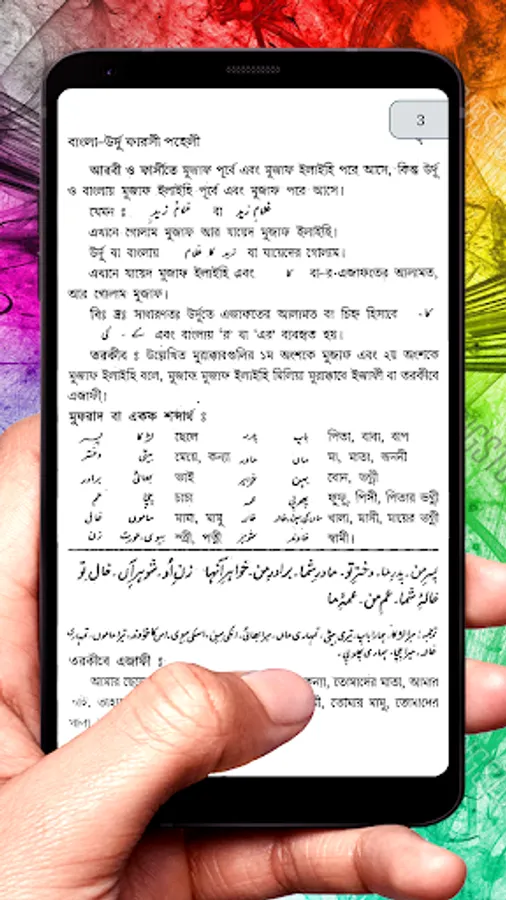 3
বাংলা-উর্দু ফারসী পহেলী
আরবী ও ফার্সীতে মুজাফ পূর্বে এবং মুজাফ ইলাইহি পরে আসে, কিন্তু উর্দু
ও বাংলায় মুজাফ ইলাইহি পূর্বে এবং মুজাফ পরে আসে।
যেমন ঃ غلامُ زیدٍ বা غلامِ زید
এখানে গোলাম মুজাফ আর যায়েদ মুজাফ ইলাইহি।
উর্দু বা বাংলায় زید کا غلام বা যায়েদের গোলাম।
এখানে যায়েদ মুজাফ ইলাইহি এবং کا বা-র-এজাফতের আলামত,
আর গোলাম মুজাফ।
বিঃ দ্রঃ সাধারণতঃ উর্দুতে এজাফতের আলামত বা চিহ্ন হিসাবে کا-
کے - کی এবং বাংলায় 'র' বা 'এর' ব্যবহৃত হয়।
তরকীব ঃ উল্লেখিত মুরাক্কাবগুলির ১ম অংশকে মুজাফ এবং ২য় অংশকে
মুজাফ ইলাইহি বলে, মুজাফ মুজাফ ইলাইহি মিলিয়া মুরাক্কাবে ইজাফী বা তরকীবে
এজাফী।
মুফরাদ বা একক শব্দার্থ ঃ
پسر لڑکا ছেলে پدر باپ পিতা, বাবা, বাপ
دختر بیٹی মেয়ে, কন্যা مادر ماں মা, মাতা, জননী
برادر بھائی ভাই خواہر بہن বোন, ভগ্নী
عم چچا চাচা عمہ پھوپی ফুফু, পিসী, পিতার ভগ্নী
خال ماموں মামা, মামু خالہ খালা, মাসী, মায়ের ভগ্নী
زن بیوی، عورت স্ত্রী, পত্নী شوہر خاوند স্বামী।
پسرِ من۔ پدرِ ما۔ دخترِ تو۔ مادرِ شما۔ برادرِ من۔ خواہرِ آنہا زنِ اُو۔ شوہرِ آں۔ خالِ تو
خالۂ شما۔ عمِ من۔ عمۂ ما
ترجمہ: میرا لڑکا، ہمارا باپ، تیری بیٹی، تمہاری ماں، میرا بھائی، انکی بہن، اسکی بیوی، اس کا خاوند، تیرا ماموں، تمہاری
خالہ، میرا چچا، ہماری پھوپی۔
তরকীবে এজাফী ঃ
আমার ছেলে কন্যা, তোমাদের মাতা, আমার
তোমার মামু, তোমাদের